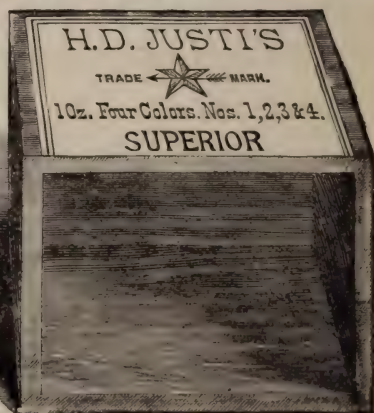 H.D. JUSTI'S
TRADE MARK.
1 Oz. Four Colors. Nos. 1, 2, 3 & 4.
SUPERIOR